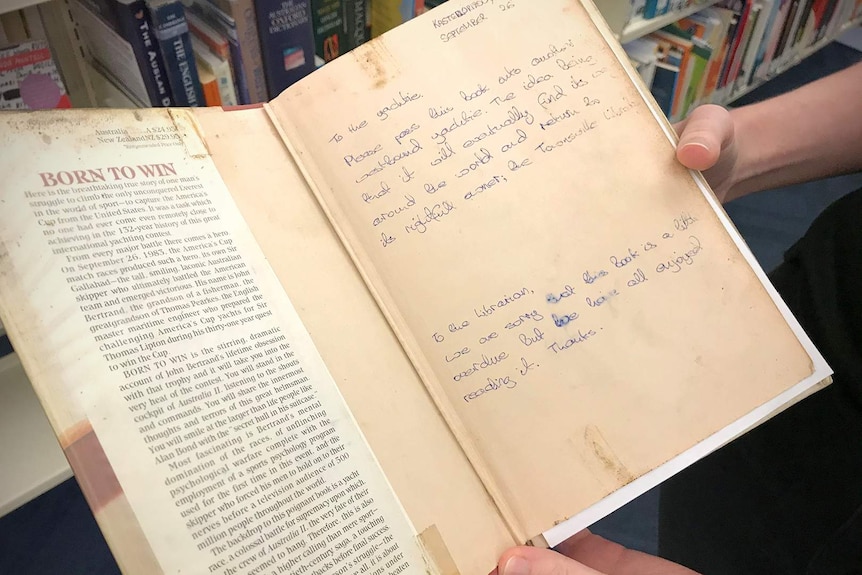 THE ENGLISH
OXFORD
DICTIONARY
Australia A$24.95
New Zealand NZ$29.95
BORN TO WIN
Here is the breathtaking true story of one man's
struggle to climb the only unconquered Everest
in the world of sport—to capture the America's
Cup from the United States. It was a task which
no one had ever come even remotely close to
achieving in the 132-year history of this great
international yachting contest.
From every major battle there comes a hero.
On September 26, 1983, the America's Cup
match races produced such a hero, its own Sir
Gallahad—the tall, smiling, laconic Australian
skipper who ultimately battled the American
team and emerged victorious. His name is John
Bertrand, the grandson of a fisherman, the
greatgrandson of Thomas Pearkes, the English
master maritime engineer who prepared the
challenging America's Cup yachts for Sir
Thomas Lipton during his thirty-one year quest
to win the Cup.
BORN TO WIN is the stirring, dramatic
account of John Bertrand's lifetime obsession
with that trophy and it will take you into the
very heat of the contest. You will stand in the
cockpit of Australia II, listening to the shouts
and commands. You will share the innermost
thoughts and terrors of this great helmsman.
You will smile at the larger than life people like
Alan Bond with the "secret hull in his suitcase."
Most fascinating is Bertrand's mental
domination of the races, of unflinching
psychological warfare complete with the
employment of a sports psychology program
used for the first time in this event, and the
skipper who forced his men to hold on to their
nerves before a television audience of 500
million people throughout the world.
The backdrop to this poignant book is a yacht
race, a colossal battle for supremacy upon which
the crew of Australia II, the very fate of their
seemed to hang. Therefore, this is also
a higher calling than mere sport—
-century saga, a touching
son's struggle—the
backs before final success
SEPTEMBER 26
To the yachtie.
Please pass this book onto another
westbound yachtie. The idea being
that it will eventually find its way
around the world and return to
its rightful owner; the Townsville Library
To the librarian,
we are sorry that this book is a little
overdue but we have all enjoyed
reading it. Thanks.